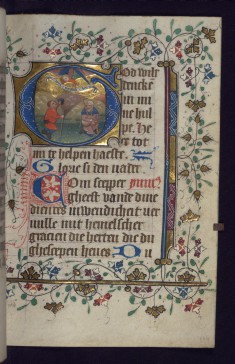 God wilt
dencke
in mi
ne hul
pe. He
re tot
mi te helpen haeste.
Glorie si den vader
Com scepper
gheest vand dine
dienres inwendichit ver
uulle mit hemelscher
gracien die herten die du
ghescepen heues Du